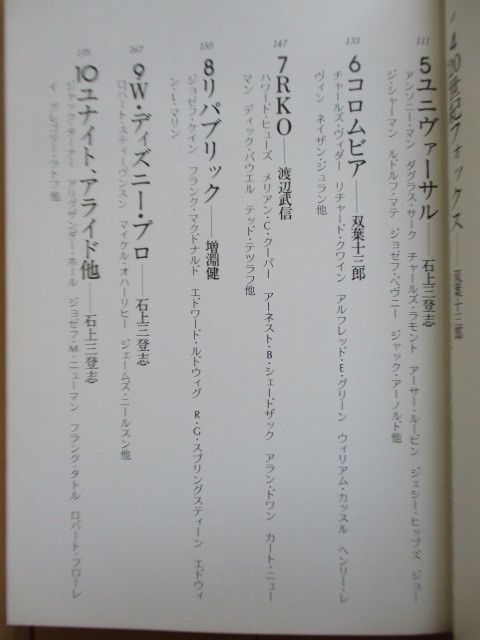 4 20世紀フォックス——双葉十三郎
111
5 ユニヴァーサル——石上三登志
アンソニー・マン ダグラス・サーク チャールズ・ラモント アーサー・ルービン ジェシー・ヒッブス ジョー
ジ・シャーマン ルドルフ・マテ ジョゼフ・ペヴニー ジャック・アーノルド他
133
6 コロムビア——双葉十三郎
チャールズ・ヴィダー リチャード・クワイン アルフレッド・E・グリーン ウィリアム・カッスル ヘンリー・レ
ヴィン ネイザン・ジュラン他
147
7 RKO——渡辺武信
ハワード・ヒューズ メリアン・C・クーパー アーネスト・B・シェードザック アラン・ドワン カート・ニュー
マン ディック・パウエル テッド・テツラフ他
159
8 リパブリック——増淵健
ジョゼフ・ケイン フランク・マクドナルド エドワード・ルドウィグ R・G・スプリングスティーン エドウィ
ン・L・マリン
167
9 W・ディズニー・プロ——石上三登志
ロバート・スティーヴンスン マイケル・オハーリヒー ジェームズ・ニールスン他
175
10 ユナイト、アライド他——石上三登志
ジャック・ターナー アリグザンダー・ホール ジョゼフ・M・ニューマン フランク・タトル ロバート・フローレ
イ グレゴリー・ラトフ他